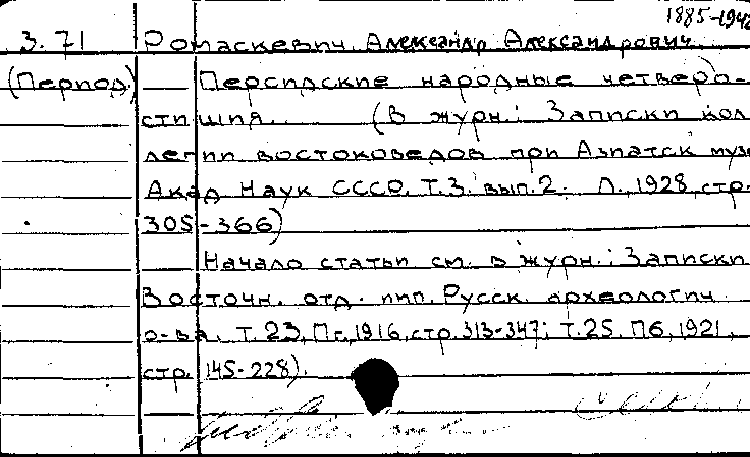 1885-1942
3.71 Ромаскевич, Александр Александрович.
(Период) Персидские народные четверо-
стишия. (В журн.: Записки кол
легии востоковедов при Азиатск музе
Акад Наук СССР, Т.3. вып.2. Л., 1928, стр.
305-366)
Начало статьи см. в журн.: Записки
Восточн. отд. имп. Русск. археологич.
о-ва, Т.23, Пг., 1916, стр. 313-347; Т.25. Пб, 1921,
стр. 145-228).